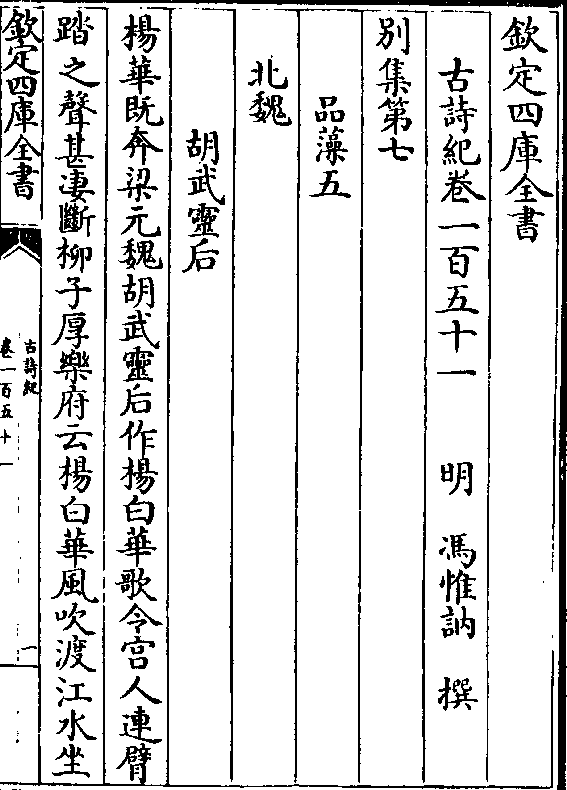 欽定四庫全書
古詩紀卷一百五十一　明　馮惟訥　撰
別集第七
品藻五
北魏
胡武靈后
楊華既奔梁元魏胡武靈后作楊白華歌令宫人連臂
踏之聲甚淒斷柳子厚樂府云楊白華風吹渡江水坐
欽定四庫全書
古詩紀
卷一百五十一
一